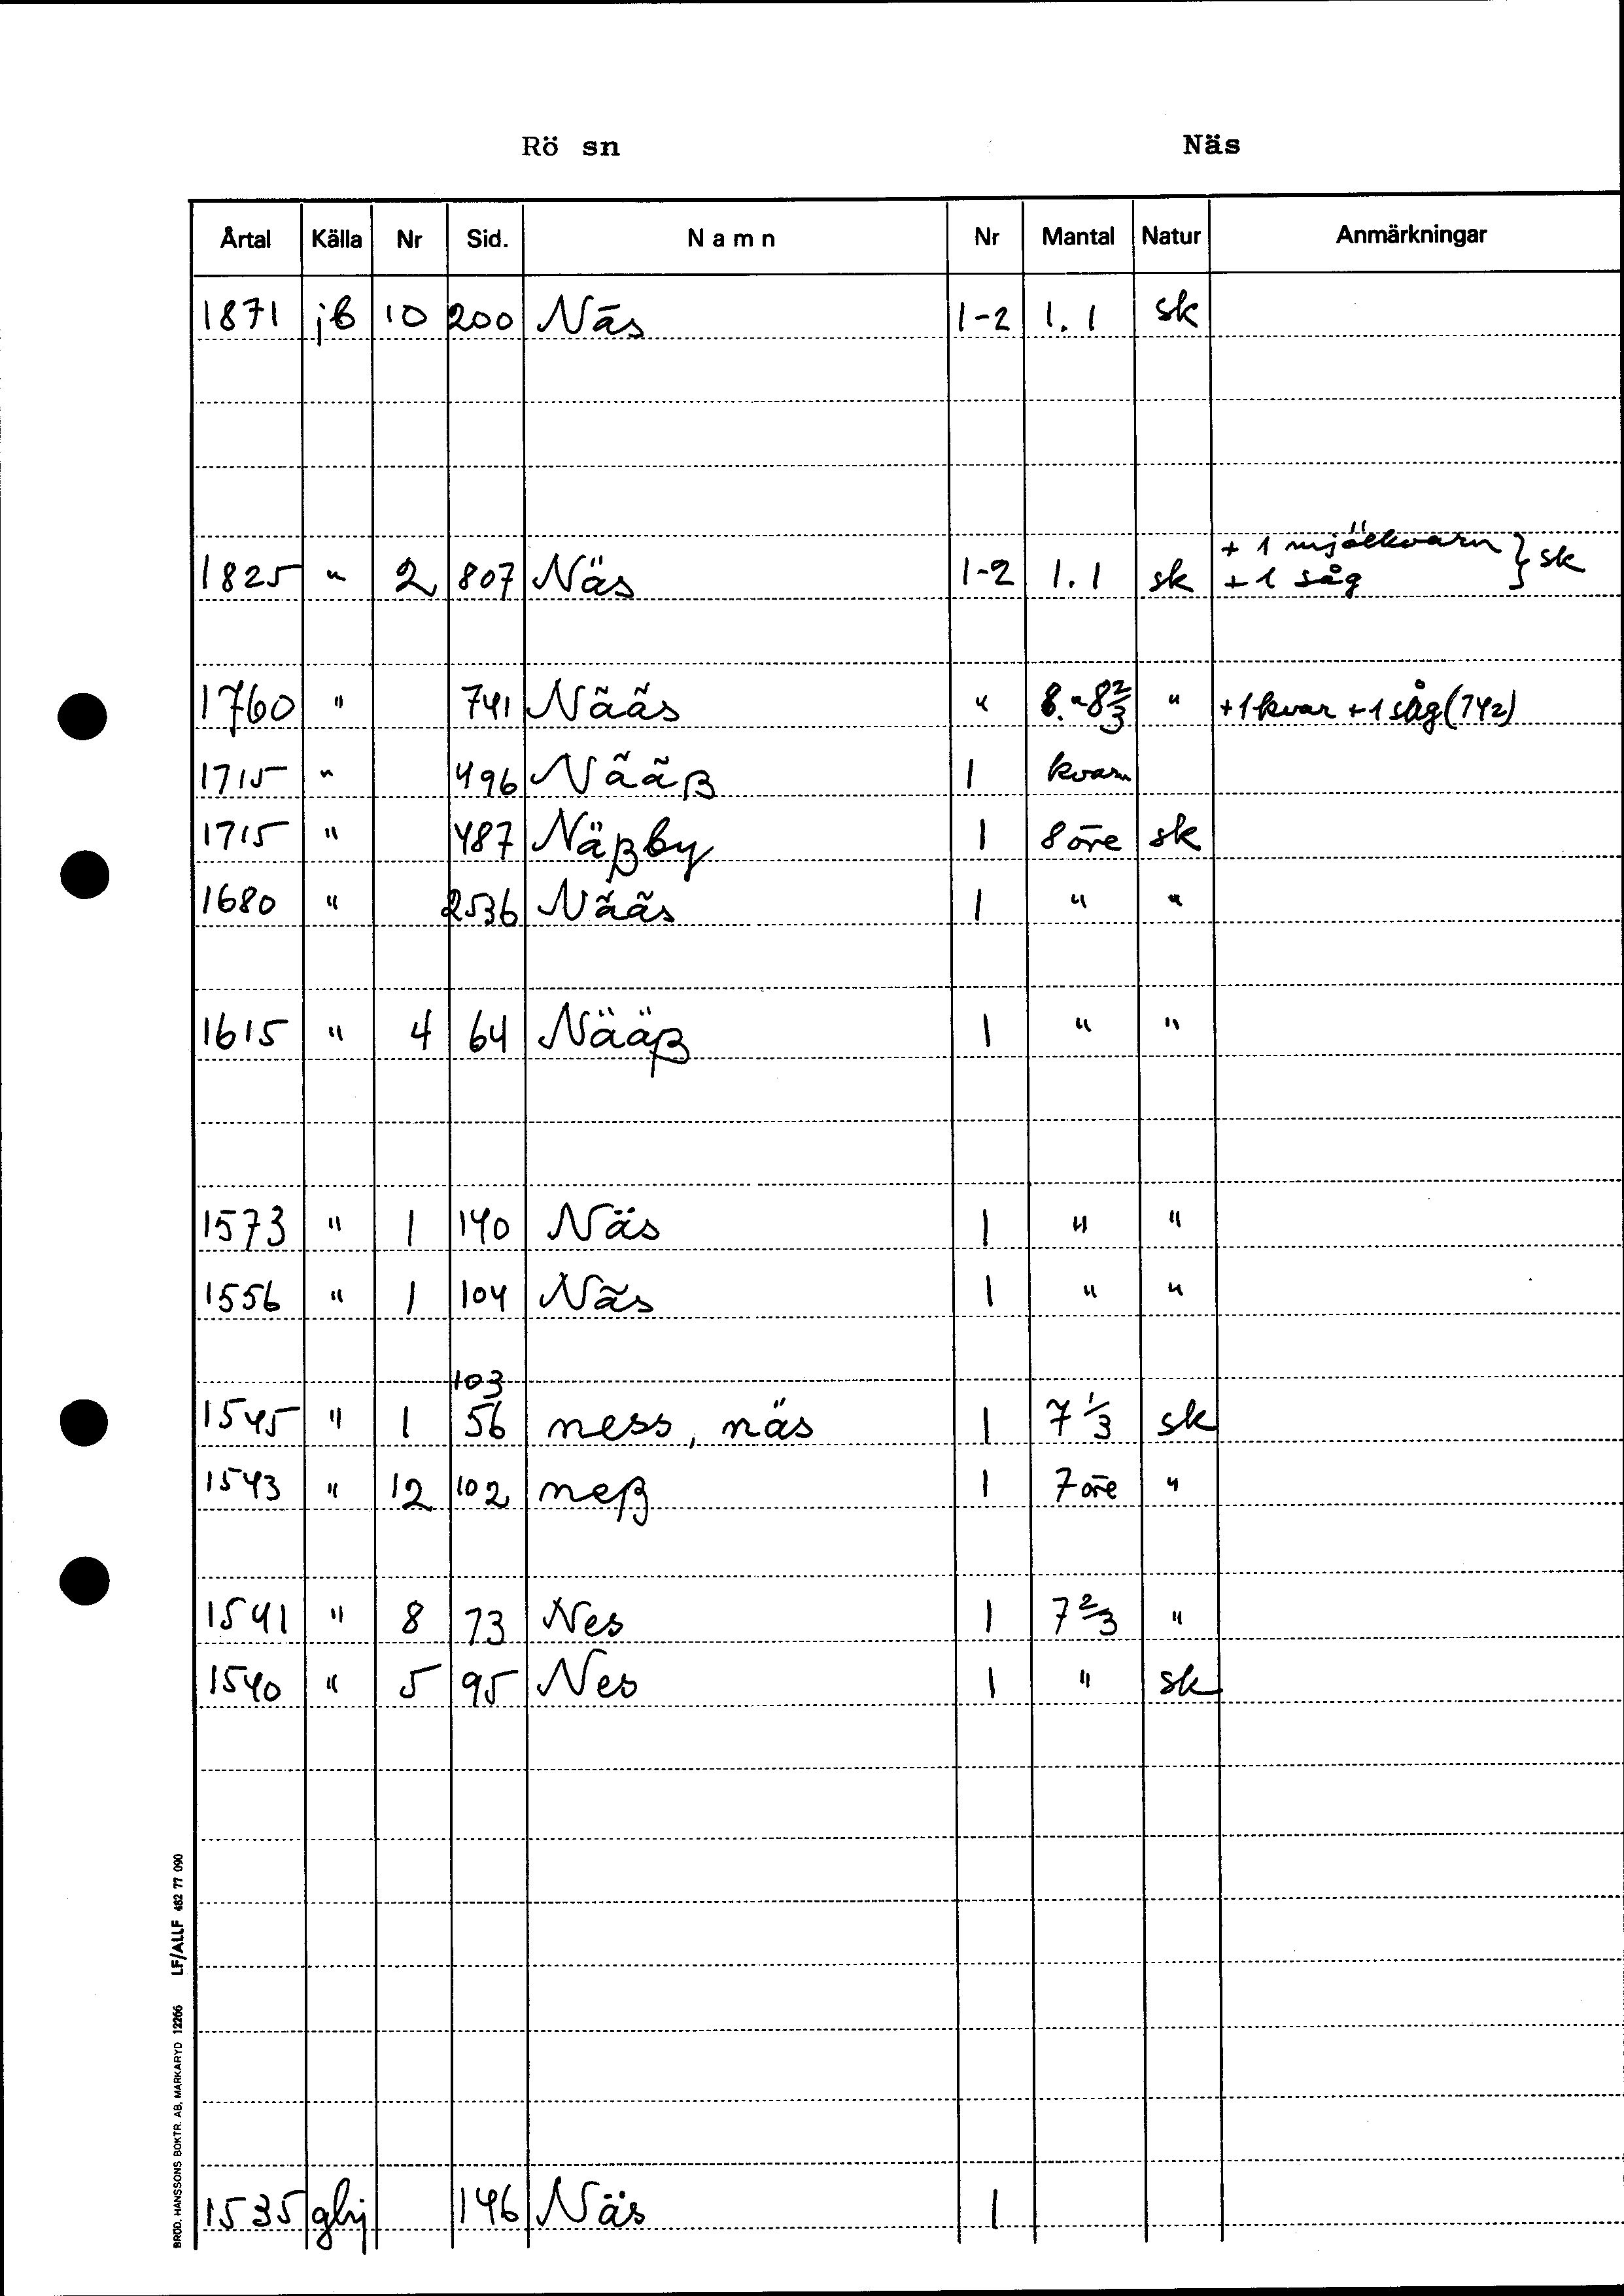 Rö sn Näs
Årtal Källa Nr Sid. Namn Nr Mantal Natur Anmärkningar
1871 jb 10 200 Näs 1-2 1.1 sk
+ 1 mjölkvarn } sk
1825 " 2 807 Näs 1-2 1.1 sk + 1 såg
1760 " 741 Nääs " 8.-8 2/3 " +1 kvar +1 såg (742)
1715 " 496 Nääß 1 kvarn
1715 " 487 Näßby 1 8 öre sk
1680 " 2536 Nääs 1 " "
1615 " 4 64 Nääß 1 " "
1573 " 1 140 Näs 1 " "
1556 " 1 104 Näs 1 " "
103
1545 " 1 56 ness, näs 1 7 1/3 sk
1543 " 12 102 neß 1 7 öre "
1541 " 8 73 Nes 1 7 2/3 "
1540 " 5 95 Nes 1 " sk
1535 ghj 146 Näs 1
BRÖD. HANSSONS BOKTR. AB, MARKARYD 12266 LF/ALLF 482 77 090